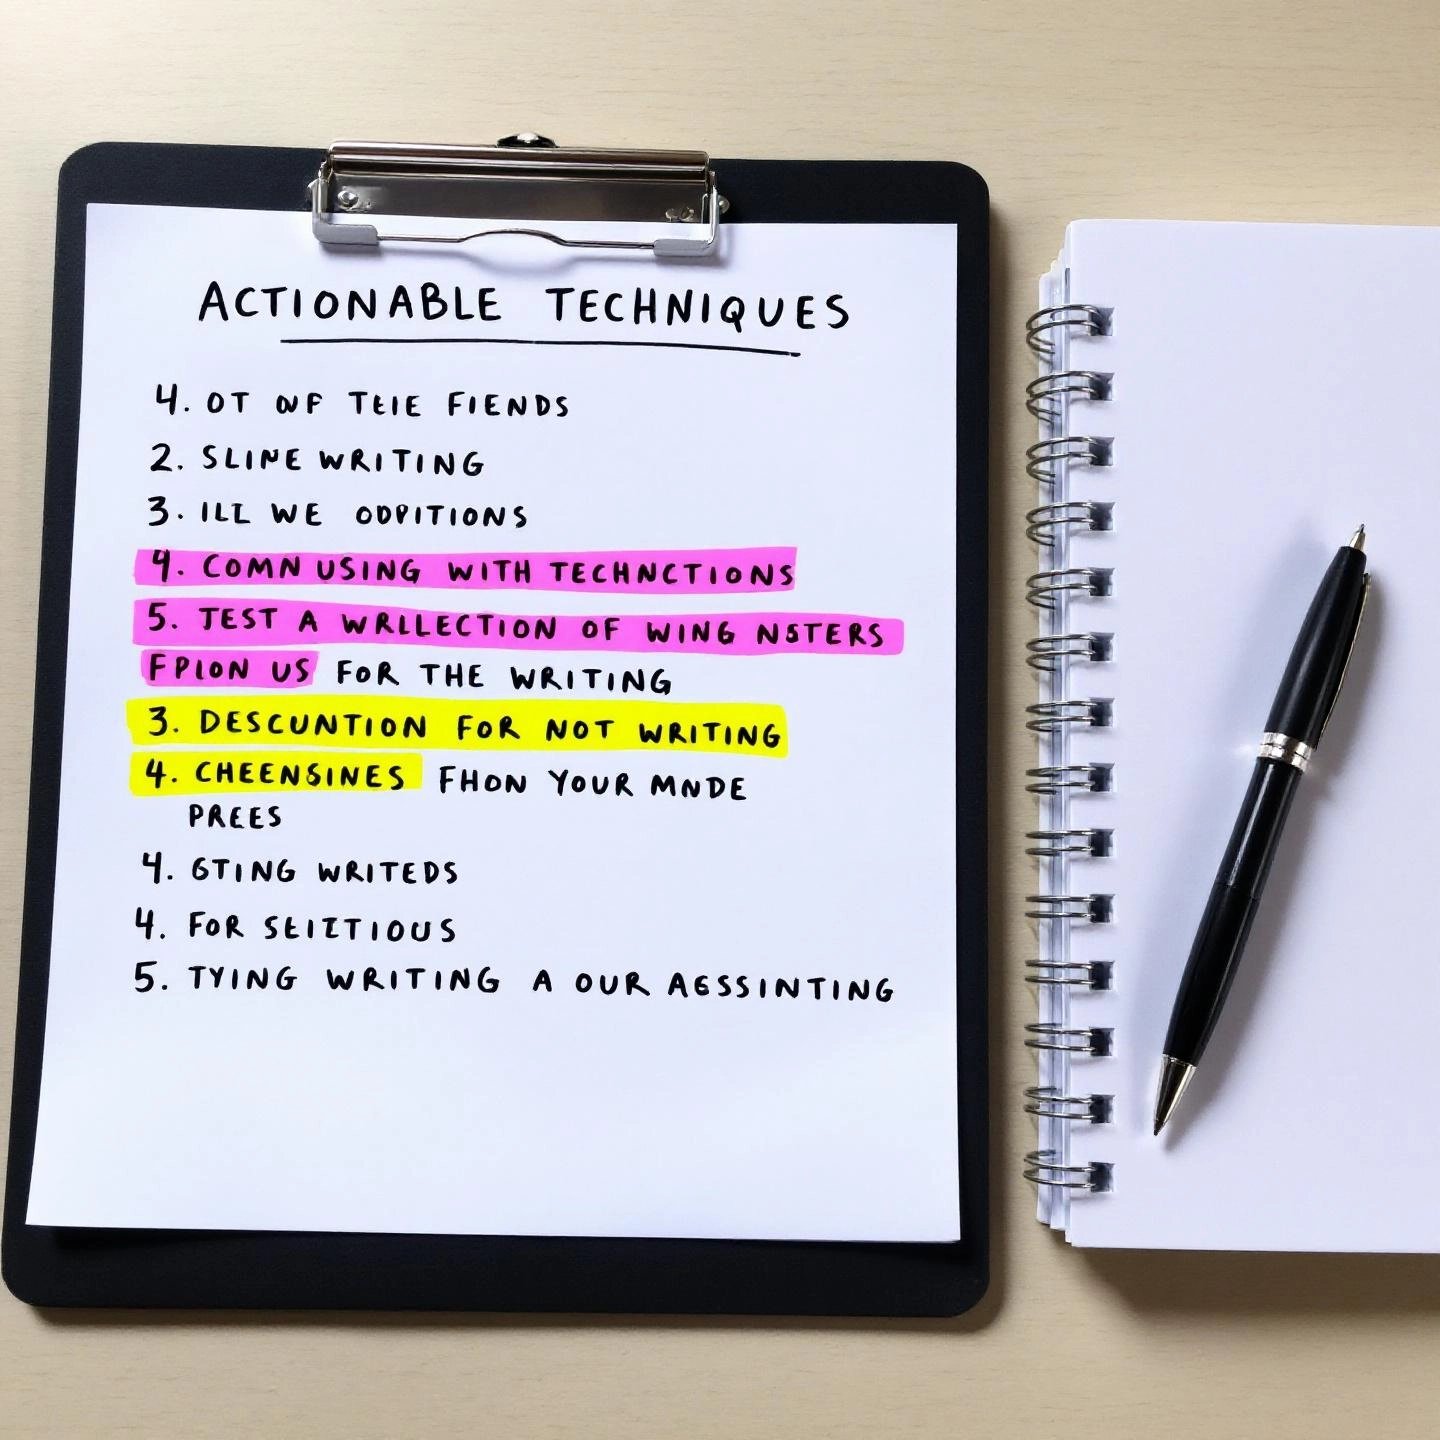 ACTIONABLE TECHNIQUES
4. OT OF TEIE FIENDS
2. SLINE WRITING
3. ILL WE ODPITIONS
4. COMN USING WITH TECHNCTIONS
5. TEST A WRLLECTION OF WING NSTERS
FPION US FOR THE WRITING
3. DESCUNTION FOR NOT WRITING
4. CHEENSINES FHON YOUR MNDE
PREES
4. GTING WRITEDS
4. FOR SEIZTIOUS
5. TYING WRITING A OUR AESSINTING